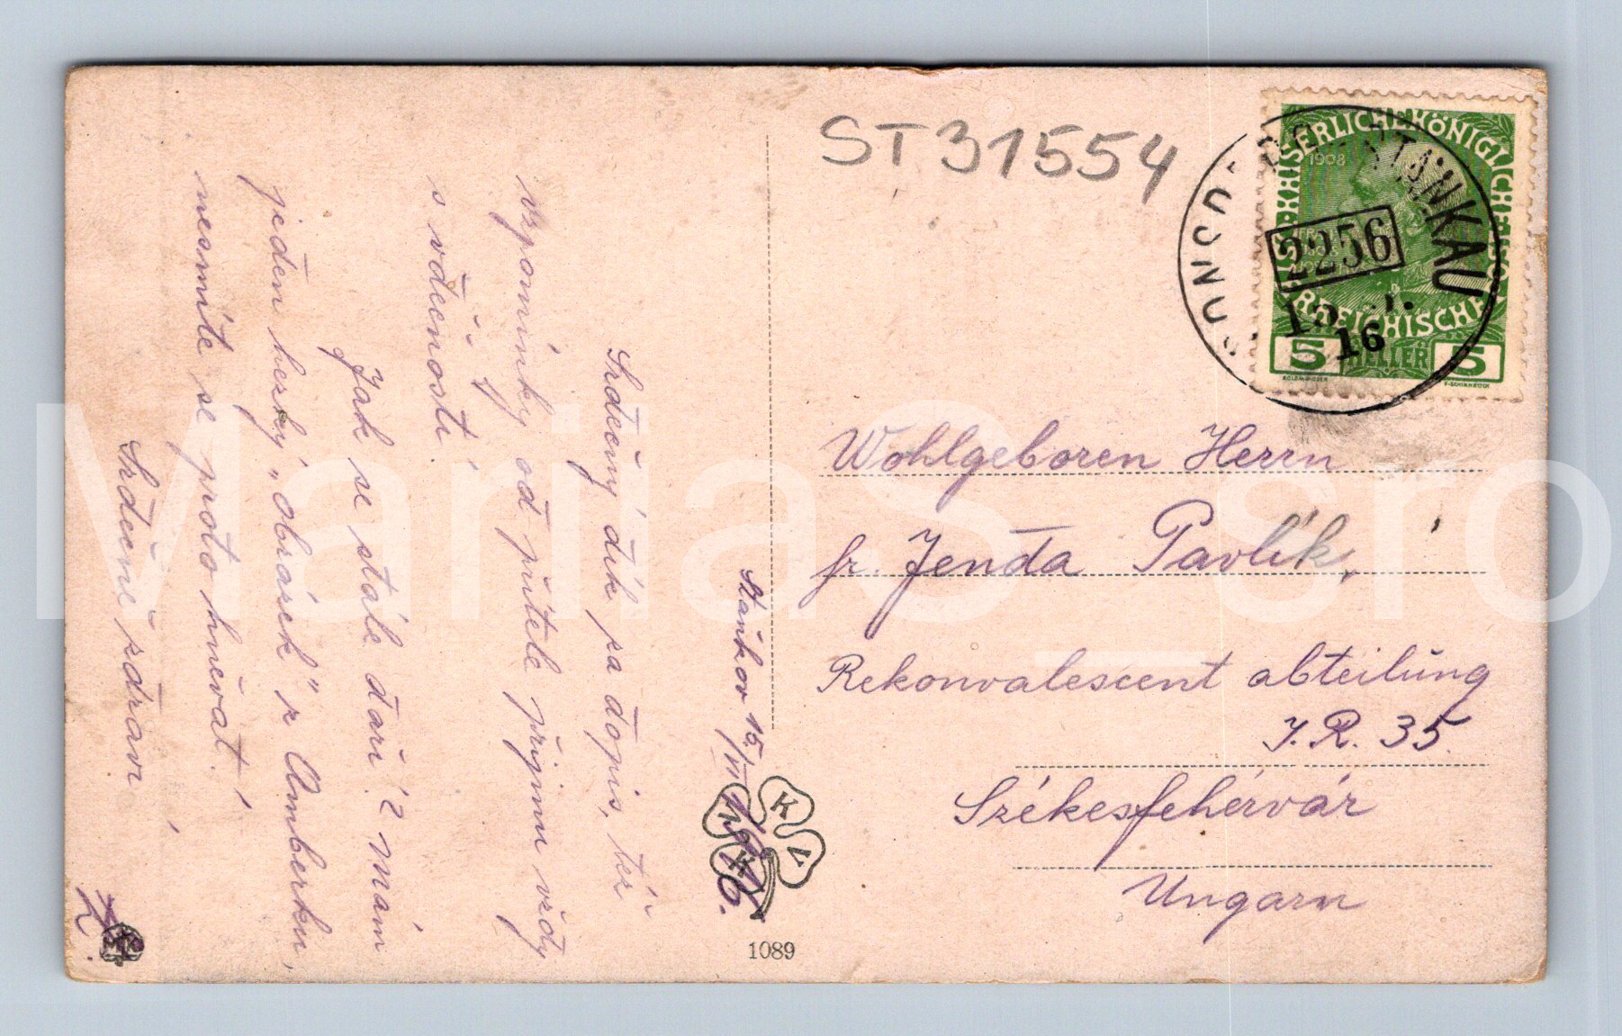 ST 31554
KAISERLICHE KÖNIGLICHE
ÖSTERREICHISCHE
1908
5 HELLER 5
RONSPERG STANKAU
2256
15. 1.
16
Wohlgeboren Herrn
fr. Jenda Pavlík,
Rekonvalescent abteilung
I.R. 35.
Székesfehérvár
Ungarn
Staňkov 15./VI 1916.
Srdečný dík za dopis, též
vzpomínky od přítele přijímu vždy
s vděčností.
Jak se stále daří? mám
jeden hezký „obrázek" z Amberku,
nesmíte se proto hněvat!
Srdečně zdraví
K V
1089
MariiaS_sro